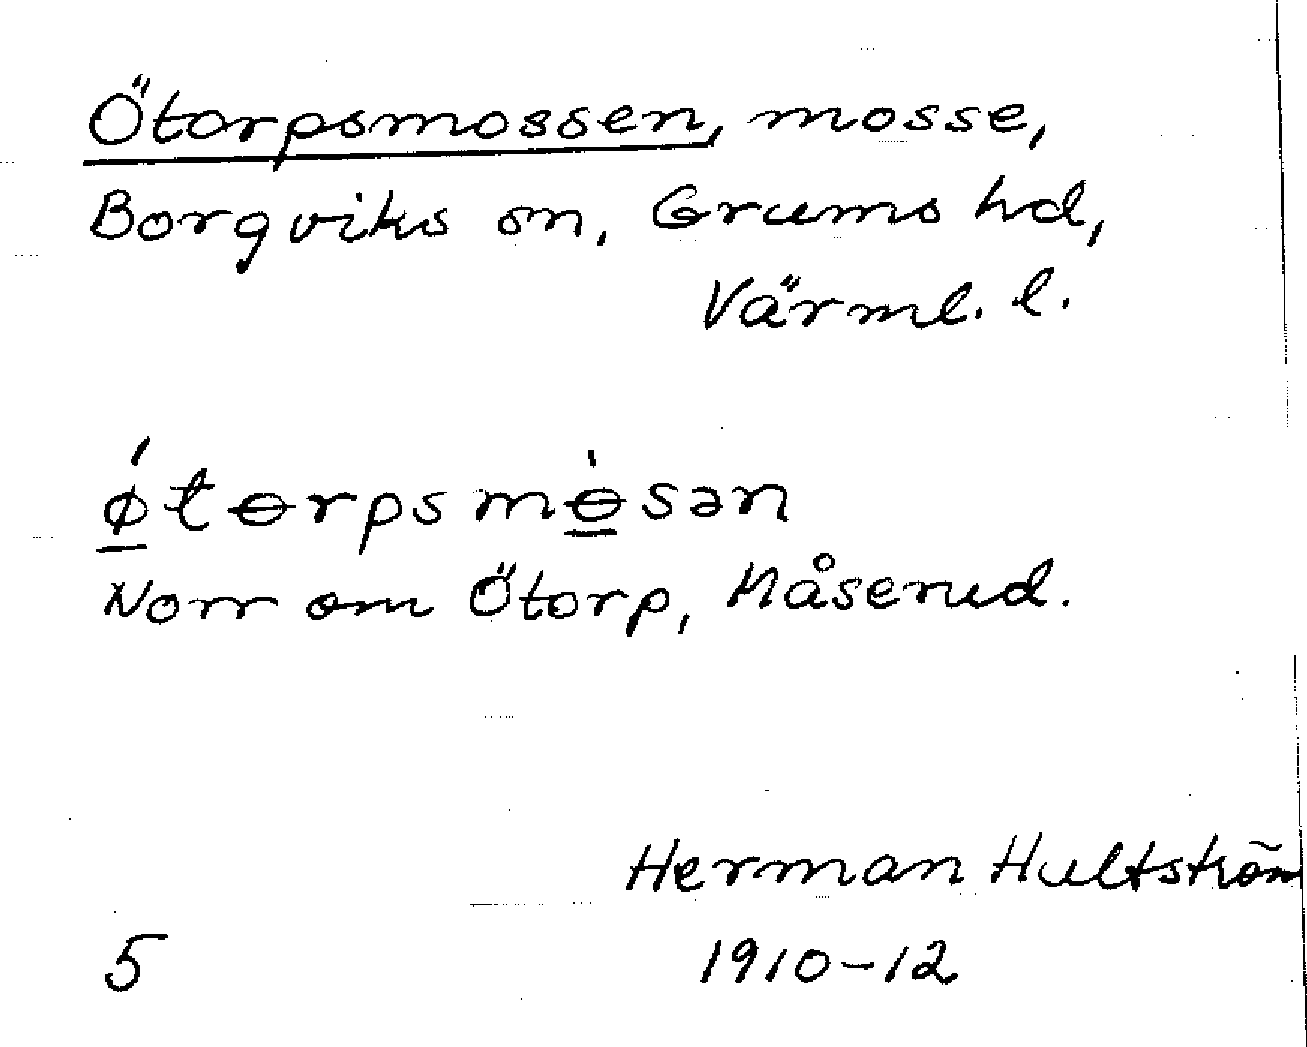 Ötorpsmossen, mosse,
Borgviks sn, Grums hd,
Värml. l.
ǿtɵrpsmɵ̀sən
Norr om Ötorp, Håserud.
Herman Hultström
5 1910-12